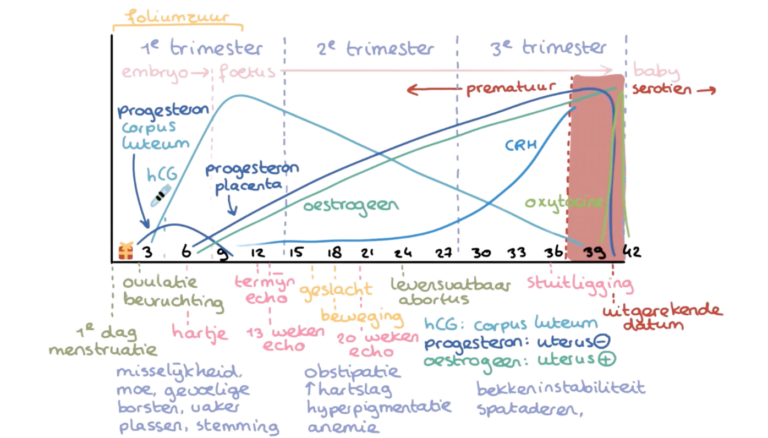 foliumzuur
1e trimester 2e trimester 3e trimester
embryo → foetus → baby
← prematuur serotien →
progesteron
corpus
luteum
hCG
progesteron
placenta
oestrogeen
CRH
oxytocine
3 6 9 12 15 18 21 24 27 30 33 36 39 42
ovulatie
bevruchting
termijn
echo
geslacht
levensvatbaar
abortus
stuitligging
beweging
uitgerekende
datum
1e dag
menstruatie
hartje
13 weken
echo
20 weken
echo
hCG: corpus luteum
progesteron: uterus⊖
oestrogeen: uterus⊕
misselijkheid,
moe, gevoelige
borsten, vaker
plassen, stemming
obstipatie
↑hartslag
hyperpigmentatie
anemie
bekkeninstabiliteit
spataderen,